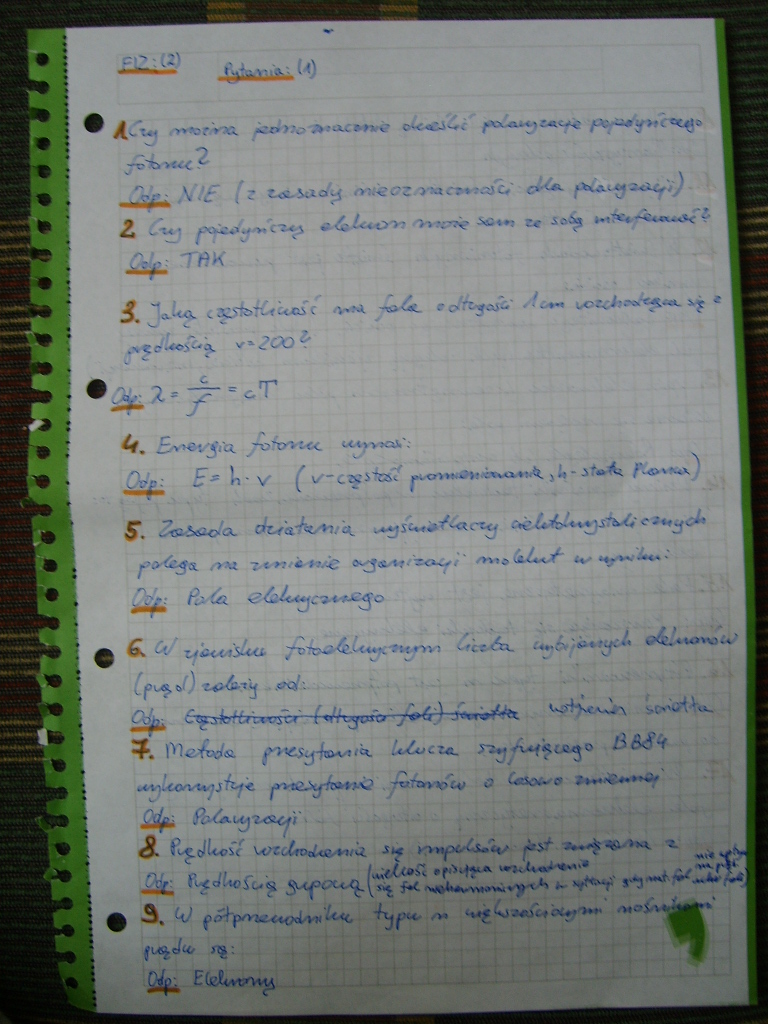 FIZ: (2) Pytania: (1)
1. Czy można jednoznacznie określić polaryzację pojedyńczego
fotonu?
Odp: NIE (z zasady nieoznaczności dla polaryzacji)
2. Czy pojedyńczy elektron może sam ze sobą interferować?
Odp: TAK
3. Jaką częstotliwość ma fala o długości 1cm rozchodząca się z
prędkością v=200?
Odp: λ = c/f = cT
4. Energia fotonu wynosi:
Odp: E = h · v (v-częstość promieniowania, h-stała Planca)
5. Zasada działania wyświetlaczy ciekłokrystalicznych
polega na zmianie organizacji molekuł w wyniku:
Odp: Pola elektrycznego
6. W zjawisku fotoelektrycznym liczba wybijanych elektronów
(prąd) zależy od:
Odp: Częstotliwości (długości fali) światła natężenia światła
7. Metoda przesyłania klucza szyfrującego BB84
wykorzystuje przesyłanie fotonów o losowo zmiennej
Odp: Polaryzacji
8. Prędkość rozchodzenia się impulsów jest związana z
Odp: Prędkością grupową (wielkość opisująca rozchodzenie
się fal nieharmonicznych w
9. W półprzewodniku typu n większościowymi nośnikami
prądu są:
Odp: Elektrony